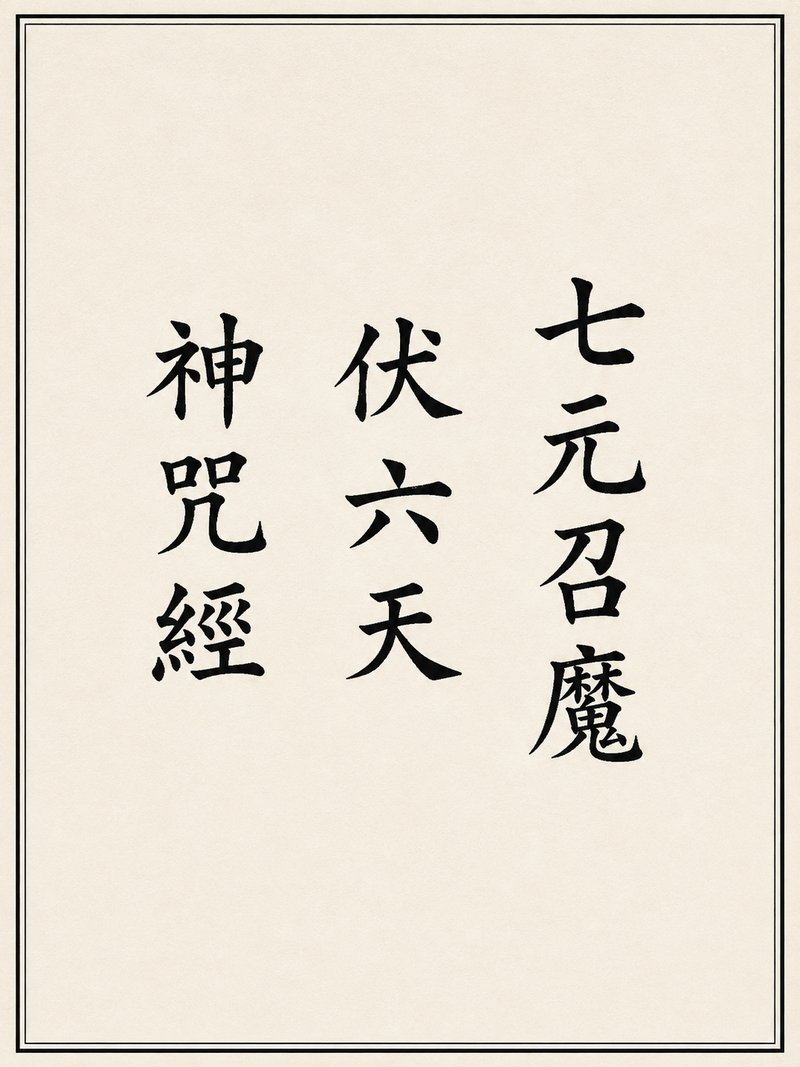 七元召魔
伏六天
神咒經